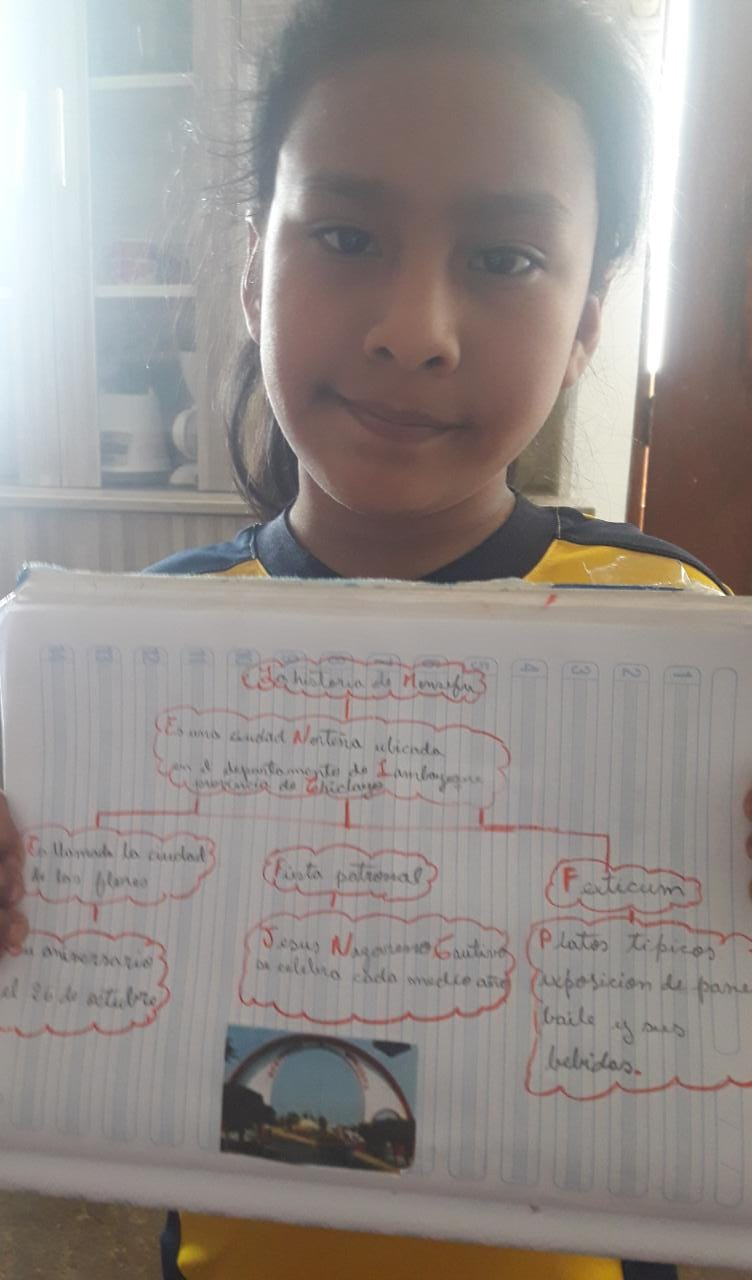 La historia de Monsefu
Es una ciudad Norteña ubicada
en el departamento de Lambayeque
provincia de Chiclayo
Es llamada la ciudad
de las flores
aniversario
el 26 de octubre
Fiesta patronal
Jesus Nazareno Cautivo
se celebra cada medio año
Fexticum
Platos tipicos
exposicion de pane
baile y sus
bebidas.
14 13 12 11 10 9 8 7 6 5 4 3 2 1